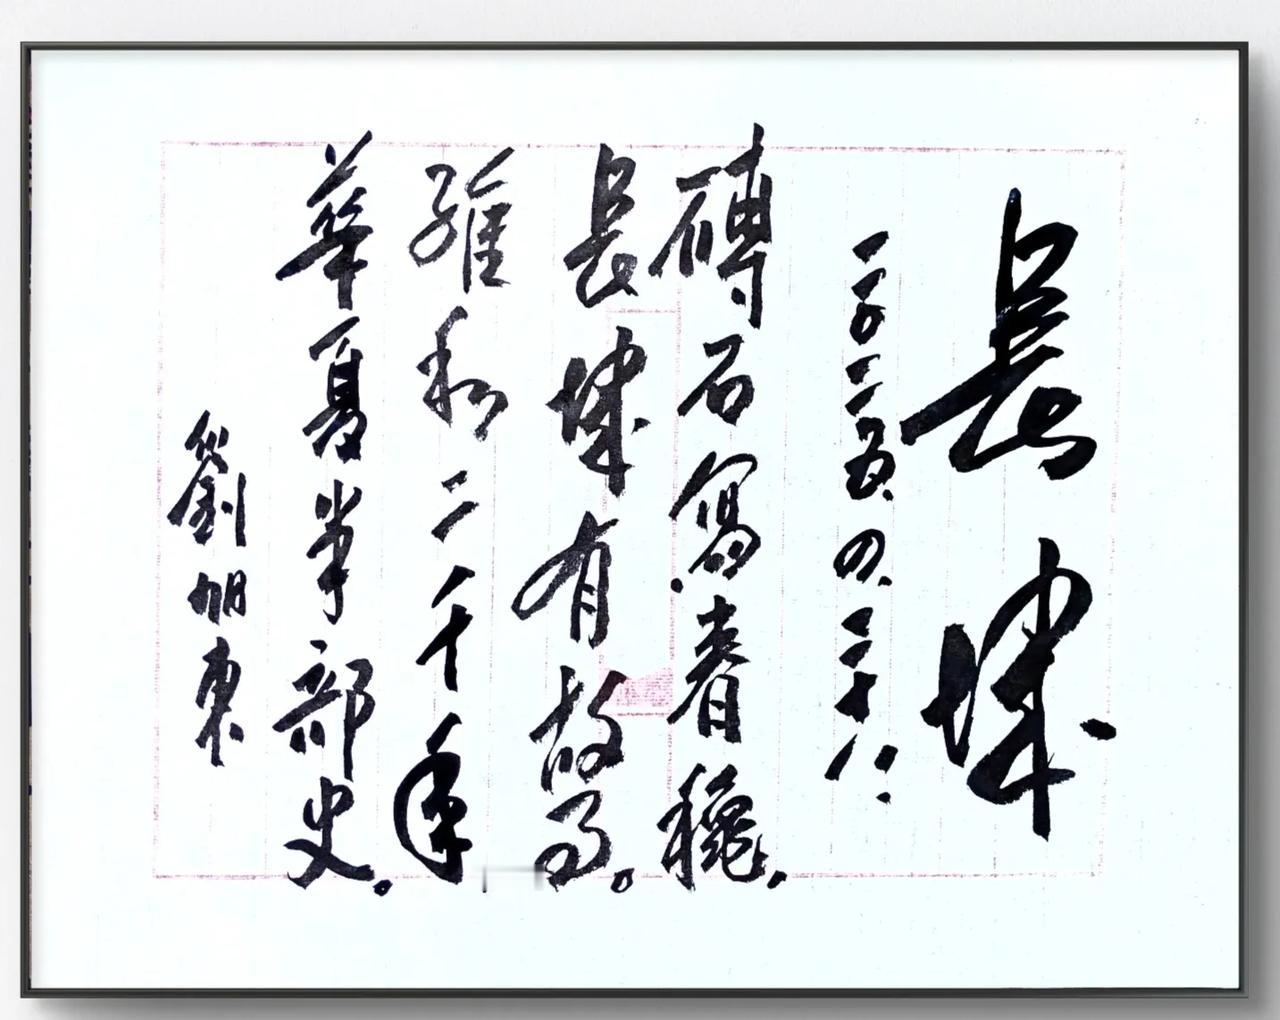 長城
二〇二五.四.二十八.
磚石寫春龝，
長城有故事。
維和二千年
華夏半部史。
劉旭東